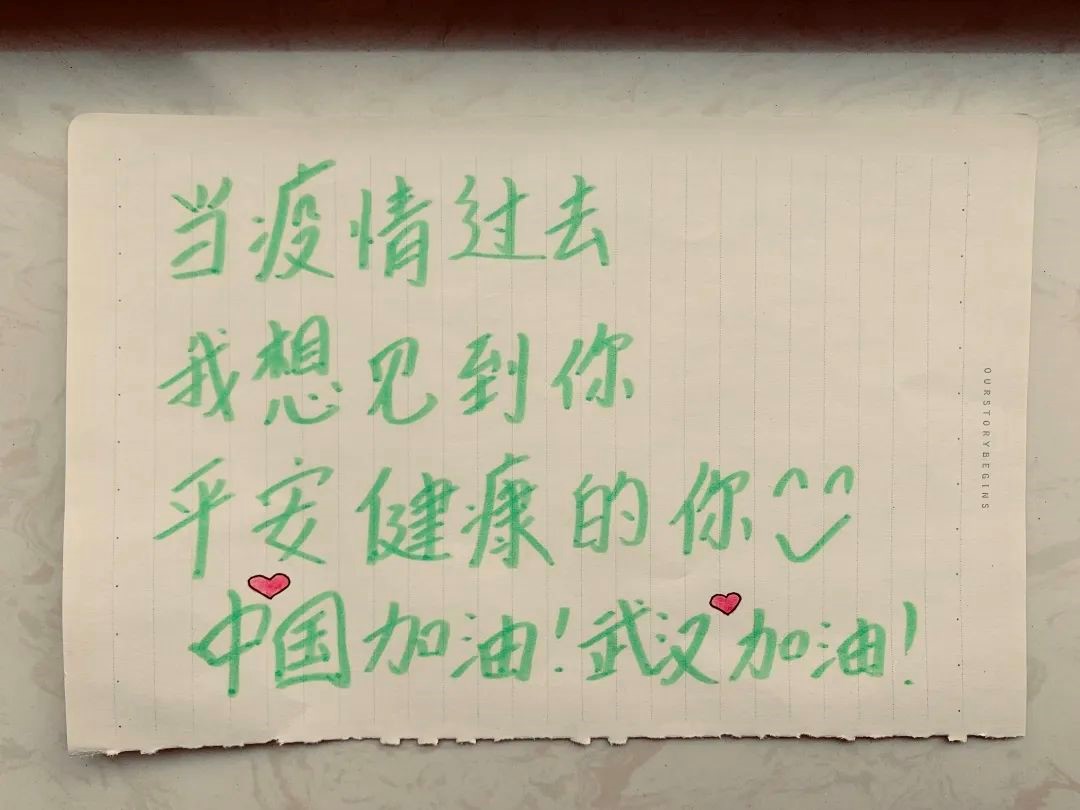 当疫情过去
我想见到你
平安健康的你
中国加油!武汉加油!
OURSTORYBEGINS